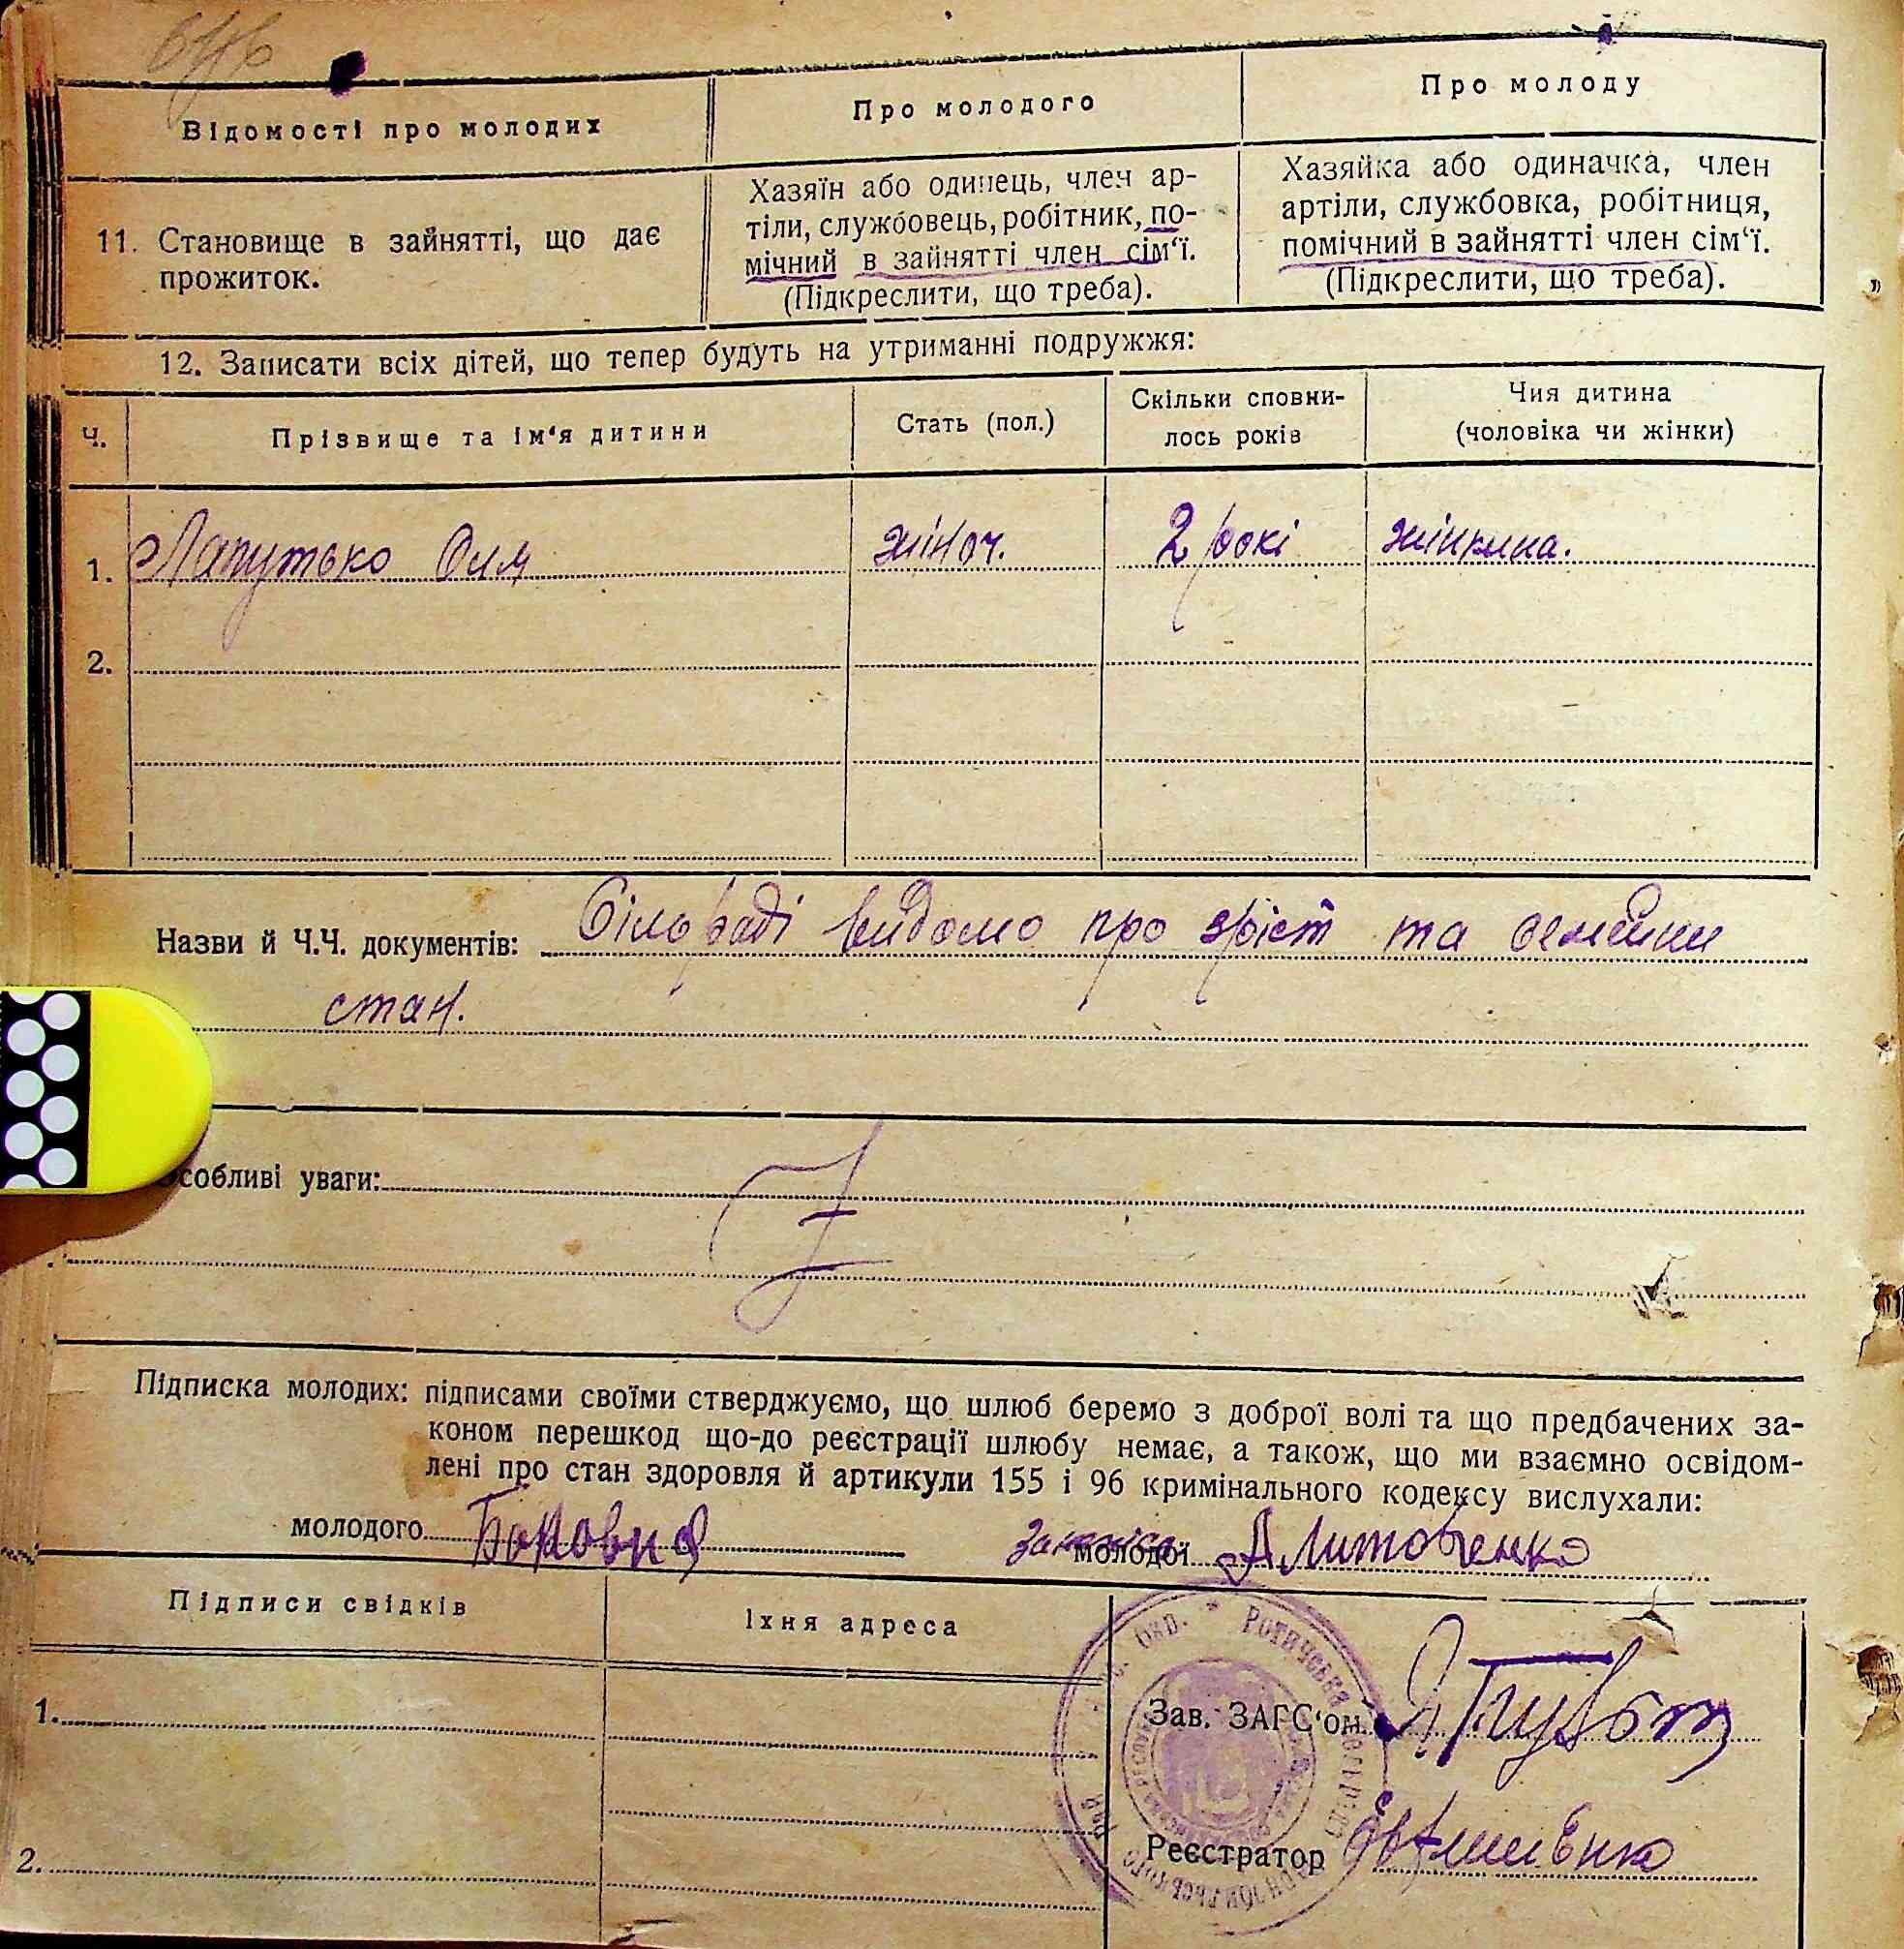 Відомості про молодих
Про молодого
Про молоду
11. Становище в зайнятті, що дає
прожиток.
Хазяїн або одинець, член ар-
тіли, службовець, робітник, по-
мічний в зайнятті член сім‘ї.
(Підкреслити, що треба).
Хазяйка або одиначка, член
артіли, службовка, робітниця,
помічний в зайнятті член сім‘ї.
(Підкреслити, що треба).
12. Записати всіх дітей, що тепер будуть на утриманні подружжя:
Ч.
Прізвище та ім‘я дитини
Стать (пол.)
Скільки сповни-
лось років
Чия дитина
(чоловіка чи жінки)
1. Лапутько Оля жіноч. 2 рокі жінкина.
2.
Назви й Ч.Ч. документів: Сільраді видомо про зріст та семейни
стан.
собливі уваги:
Підписка молодих: підписами своїми стверджуємо, що шлюб беремо з доброї волі та що предбачених за-
коном перешкод що-до реєстрації шлюбу немає, а також, що ми взаємно освідом-
лені про стан здоровля й артикули 155 і 96 кримінального кодексу вислухали:
молодого
молодої А Литовченко
Підписи свідків
Їхня адреса
1.
2.
Зав. ЗАГС‘ом
Реєстратор
Окр. * Ротичська